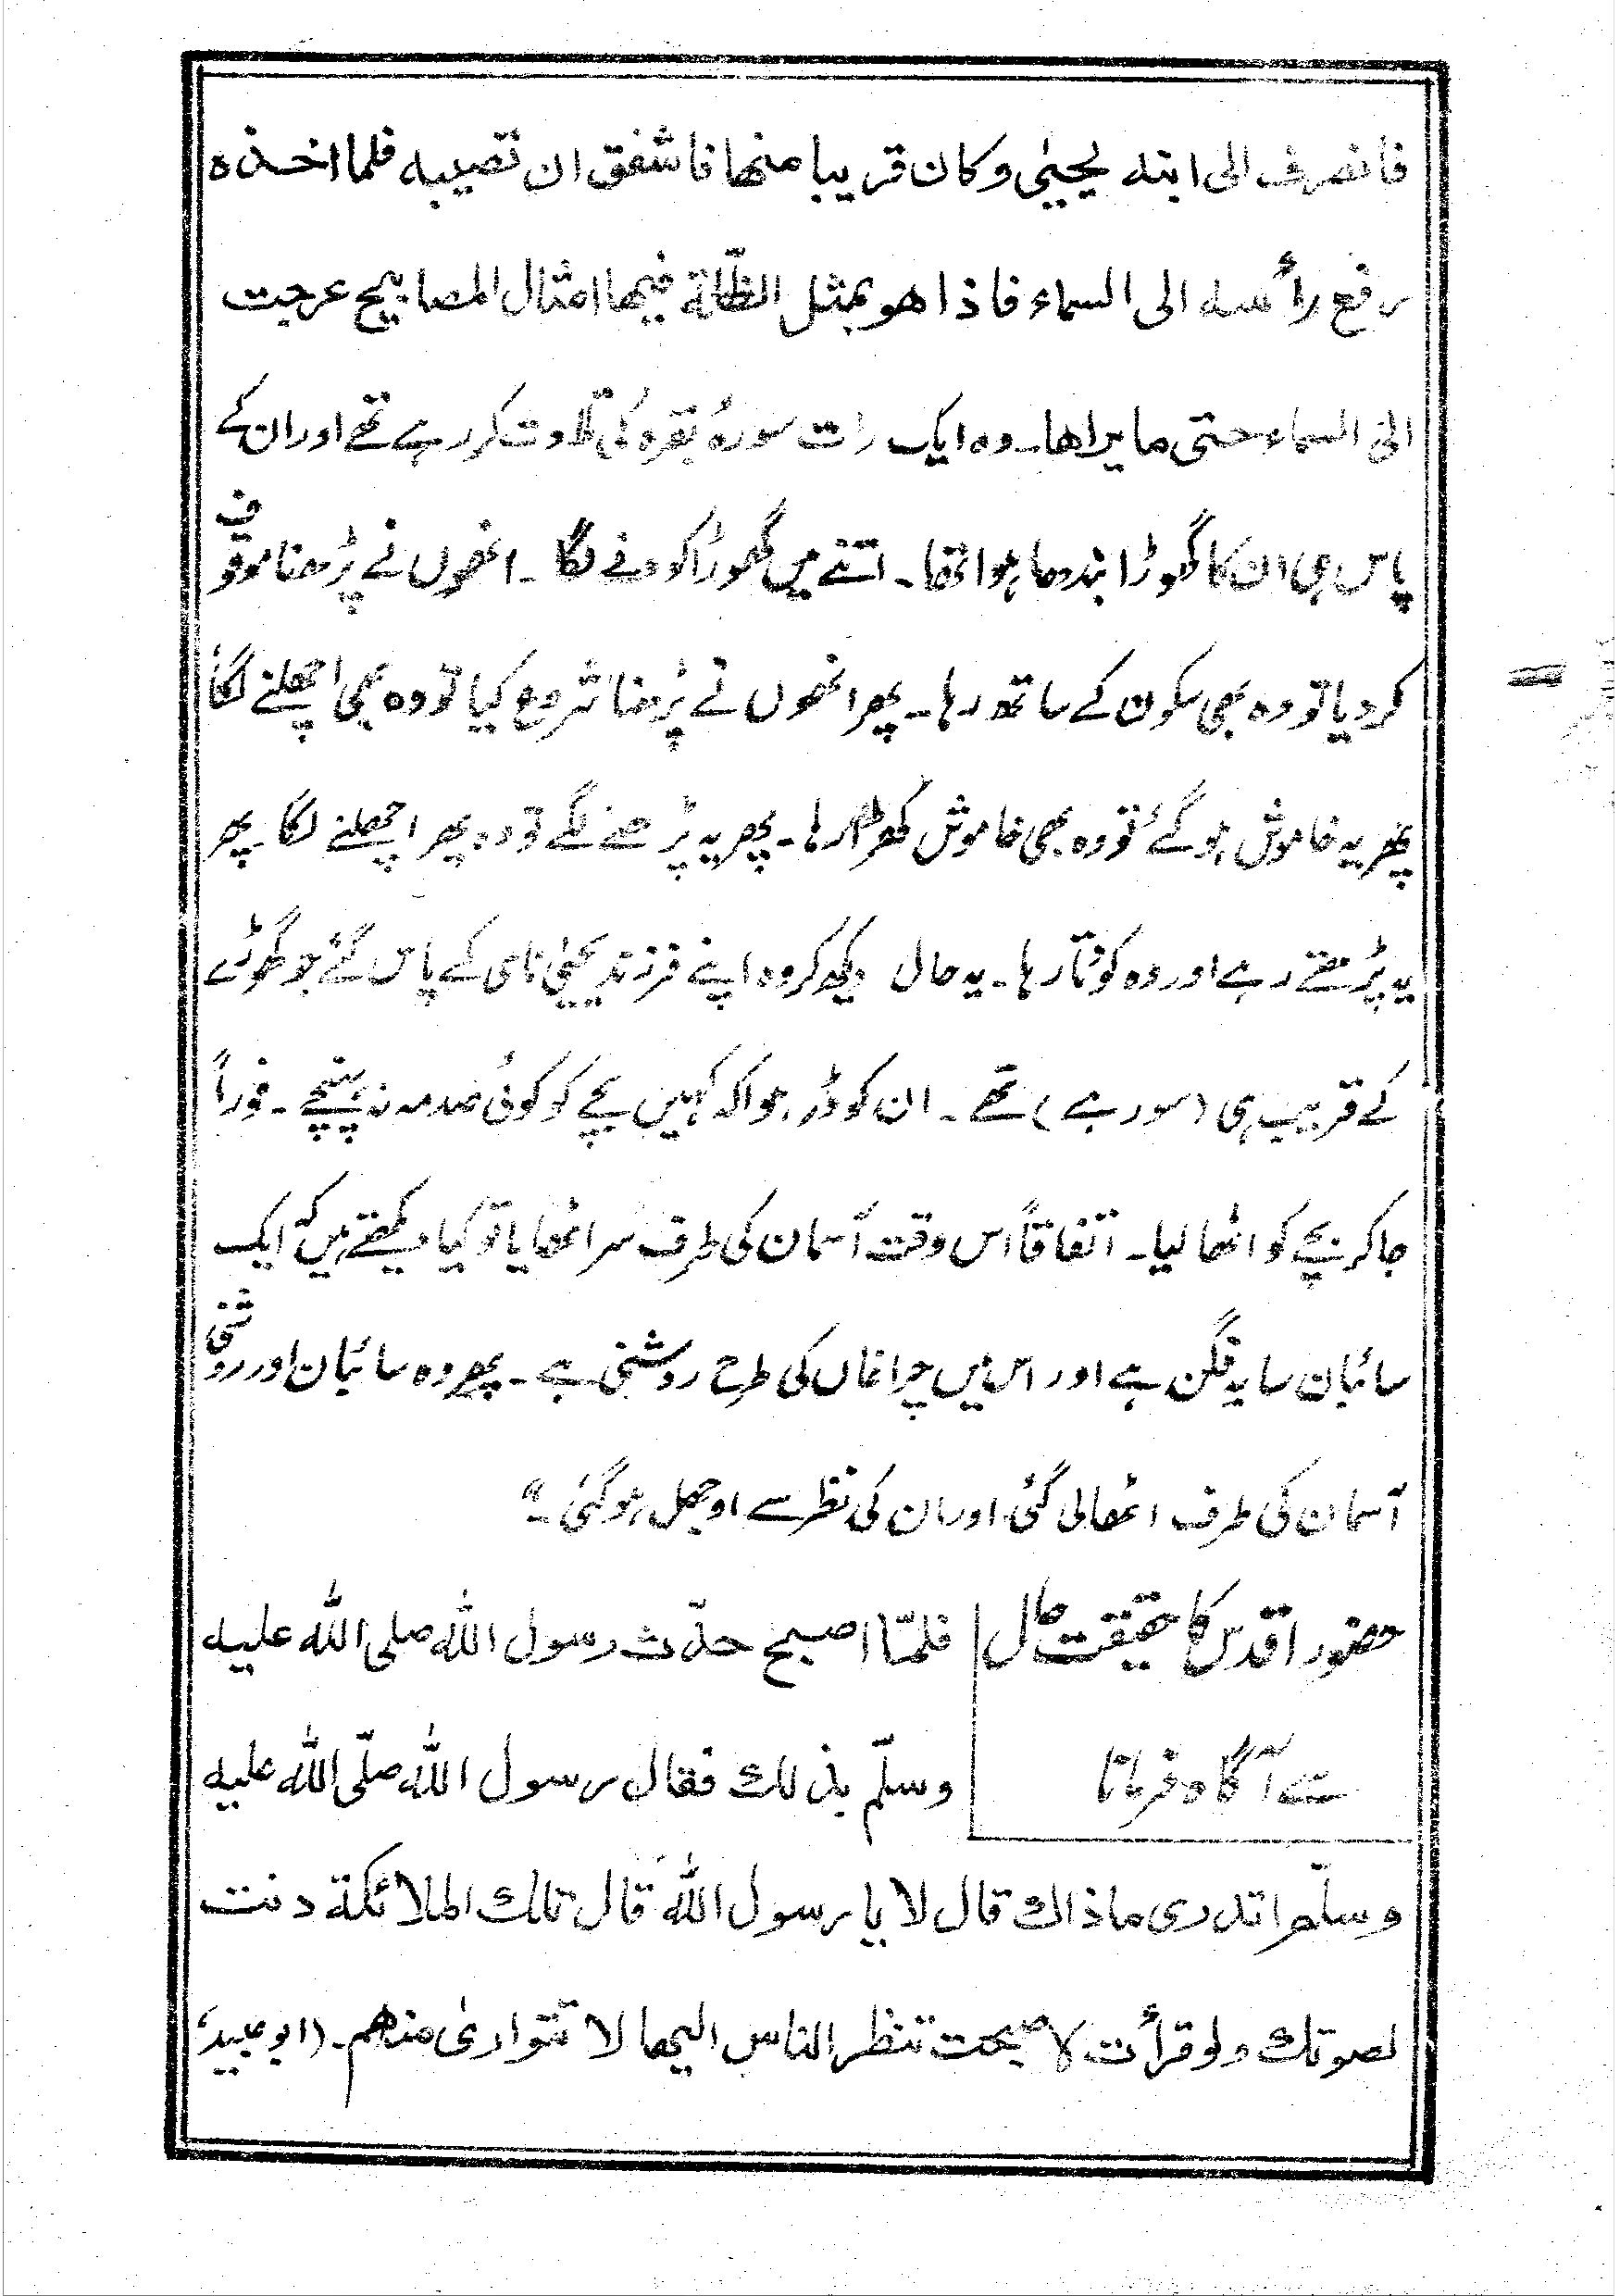 فانصرف الی ابنه یحییٰ وکان قریبا منها فاشفق ان تصیبه فلما اخذه
رفع رأسه الی السماء فاذا هو بمثل الظلّة فیها امثال المصابیح عرجت
الی السماء حتی ما یراها۔ وہ ایک رات سورۂ بقرہ کی تلاوت کر رہے تھے اور ان کے
پاس ہی ان کا گھوڑا بندھا ہوا تھا۔ اتنے میں گھوڑا کودنے لگا۔ انھوں نے پڑھنا موقوف
کر دیا تو وہ بھی سکون کے ساتھ رہا۔ پھر انھوں نے پڑھنا شروع کیا تو وہ بھی اچھلنے لگا
پھر یہ خاموش ہو گئے تو وہ بھی خاموش کھڑا رہا۔ پھر یہ پڑھنے لگے تو وہ پھر اچھلنے لگا۔ پھر
یہ پڑھتے رہے اور وہ کودتا رہا۔ یہ حال دیکھ کر وہ اپنے فرزند یحییٰ نامی کے پاس گئے جو گھوڑے
کے قریب ہی (سو رہے) تھے۔ ان کو ڈر ہوا کہ کہیں بچے کو کوئی صدمہ نہ پہنچے۔ فوراً
جا کر بچے کو اٹھا لیا۔ اتفاقاً اس وقت آسمان کی طرف سر اٹھایا تو کیا دیکھتے ہیں کہ ایک
سائبان سایہ فگن ہے اور اس میں چراغاں کی طرح روشنی ہے۔ پھر وہ سائبان اور روشنی
آسمان کی طرف اٹھالی گئی اور ان کی نظر سے اوجھل ہو گئی۔"
حضور اقدس کا حقیقت حال
سے آگاہ فرمانا
فلمّا اصبح حدّث رسول الله صلی الله علیه
وسلّم بذلك فقال رسول الله صلّی الله علیه
وسلّم اتدری ماذاك قال لا یا رسول الله قال تلك الملائکة دنت
لصوتك ولو قرأت لاصبحت تنظر الناس الیها لا تتواریٰ منهم۔ (ابو عبید،